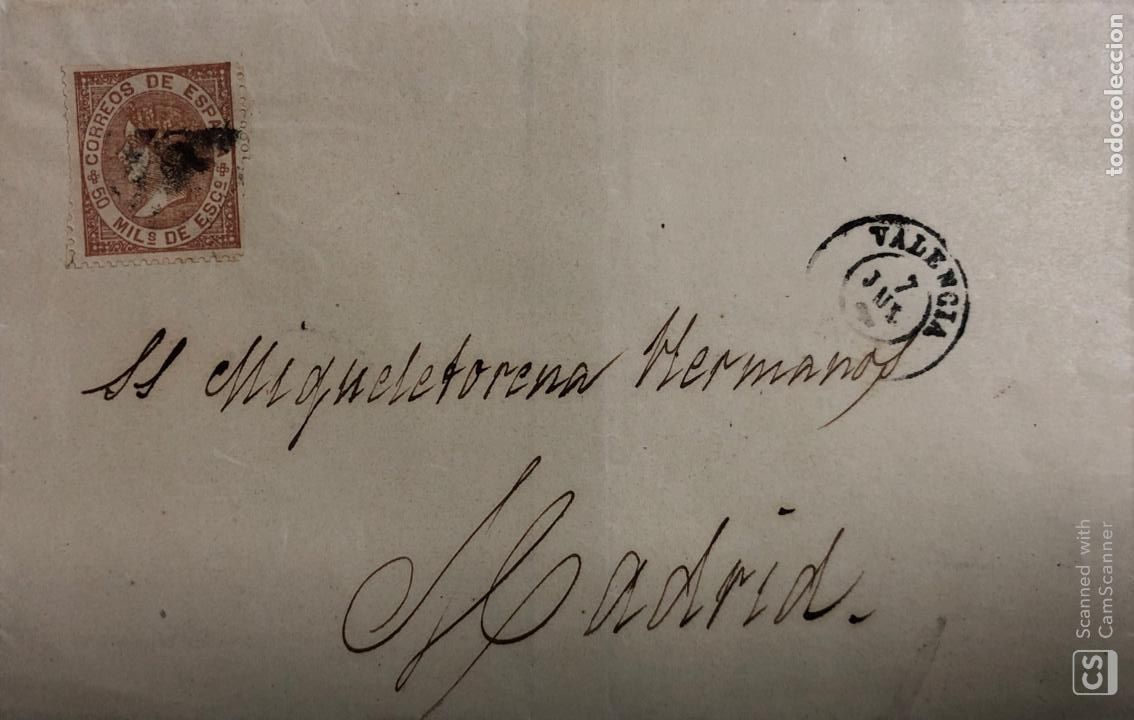 CORREOS DE ESPAÑA
50 MILS DE ESCO
VALENCIA
7
JUL
SS Migueletorena Hermanos
Madrid.
todocoleccion
Scanned with
CamScanner
CS